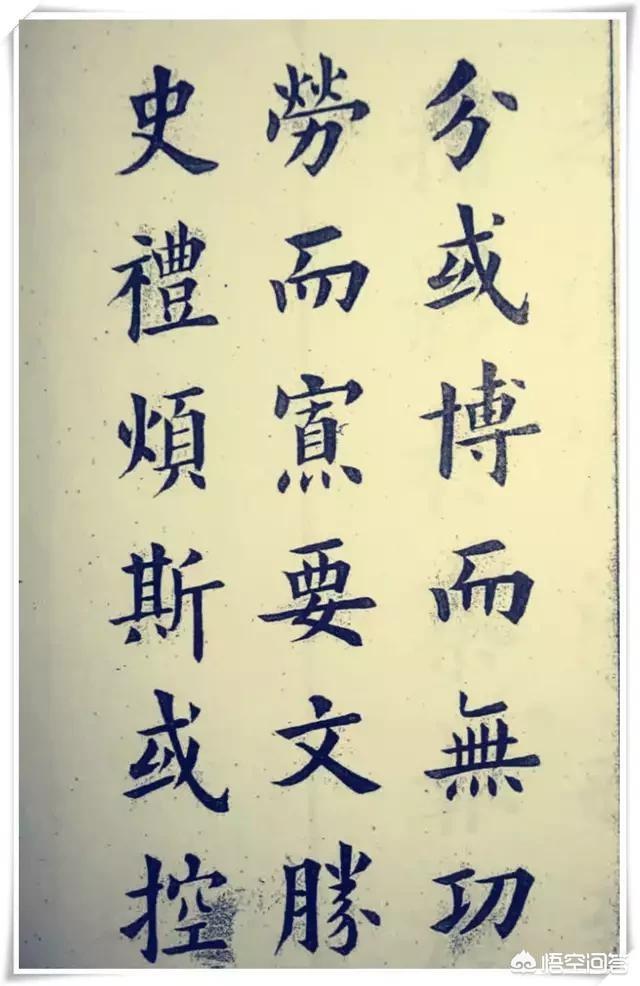 分或博而無功
勞而寡要文勝
史禮煩斯或控
悟空问答